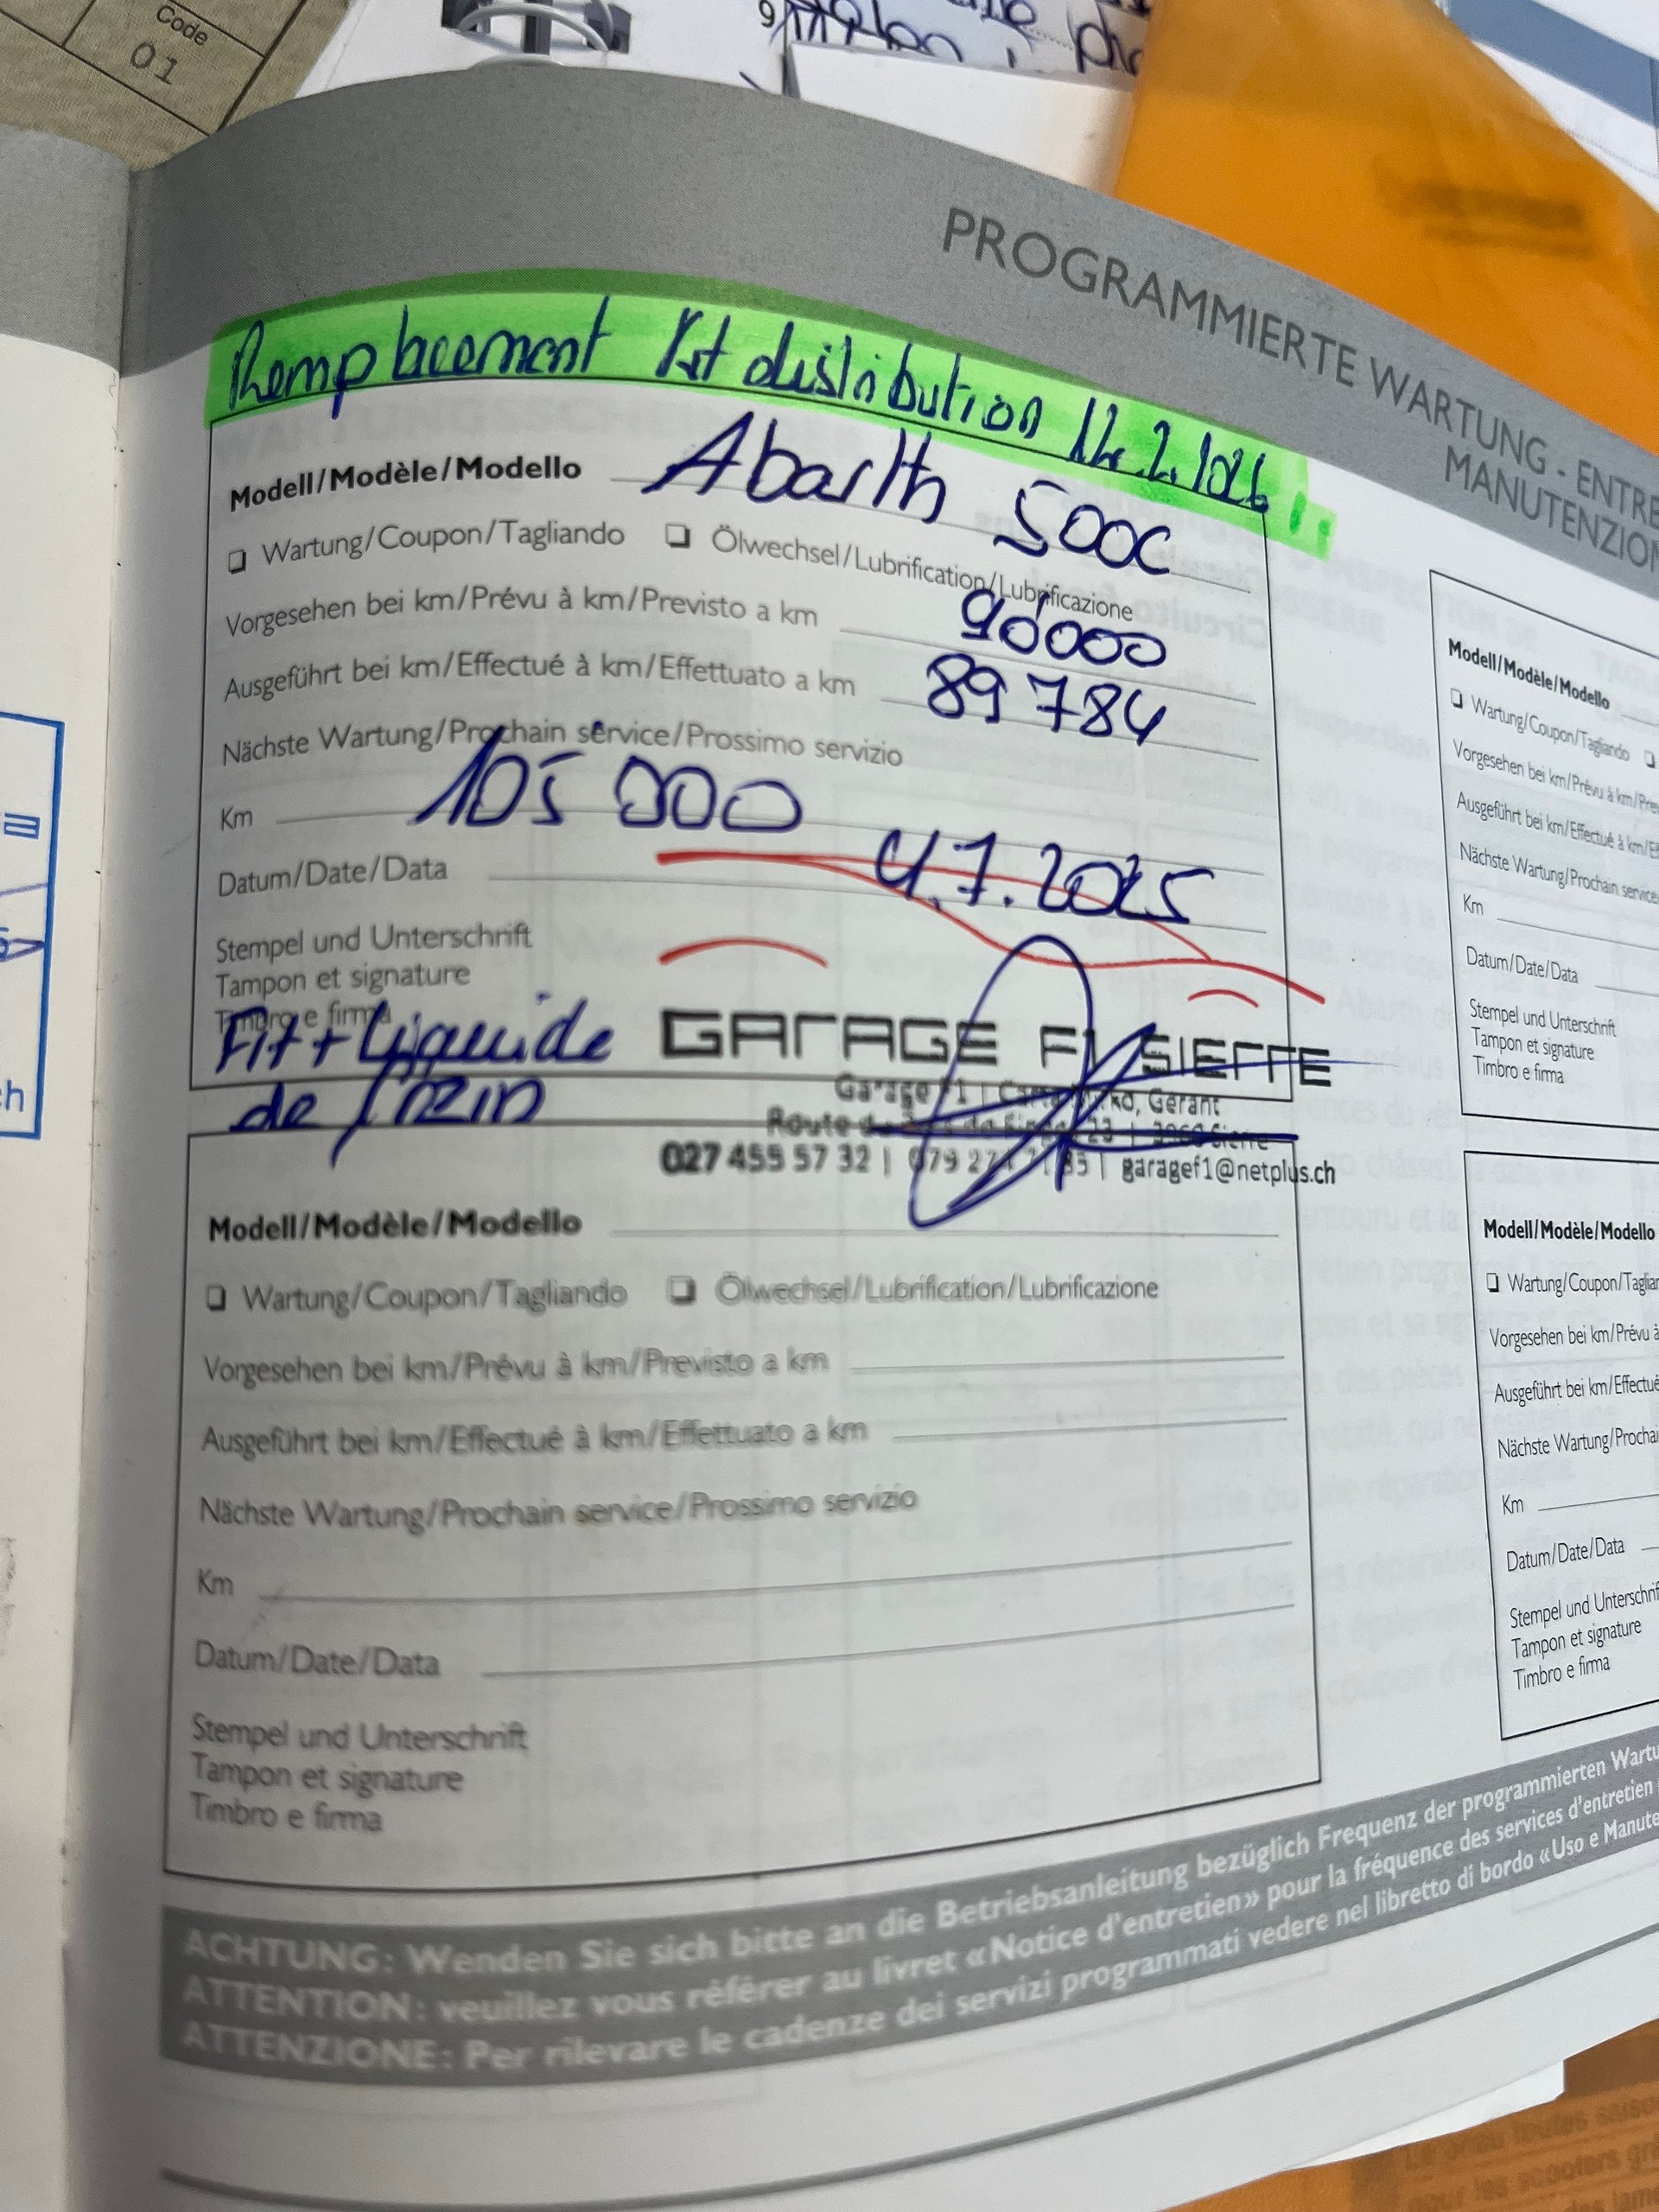 Code
01
PROGRAMMIERTE WARTUNG - ENTRE
MANUTENZION
Remplacement Kit distribution 12.2.2026!
Modell/Modèle/Modello Abarth 500C
❏ Wartung/Coupon/Tagliando ❏ Ölwechsel/Lubrification/Lubrificazione
Vorgesehen bei km/Prévu à km/Previsto a km 90000
Ausgeführt bei km/Effectué à km/Effettuato a km 89784
Nächste Wartung/Prochain service/Prossimo servizio
Km 105 000
Datum/Date/Data 4.7.2025
Stempel und Unterschrift
Tampon et signature
Timbro e firma
+ Liquide
de frein
GARAGE F1 SIERRE
Garage F1 | Gérant
Route 23 | 3960 Sierre
027 455 57 32 | 079 | garagef1@netplus.ch
Modell/Modèle/Modello
❏ Wartung/Coupon/Tagliando ❏ Ölwechsel/Lubrification/Lubrificazione
Vorgesehen bei km/Prévu à km/Previsto a km
Ausgeführt bei km/Effectué à km/Effettuato a km
Nächste Wartung/Prochain service/Prossimo servizio
Km
Datum/Date/Data
Stempel und Unterschrift
Tampon et signature
Timbro e firma
Modell/Modèle/Modello
❏ Wartung/Coupon/Tagliando ❏
Vorgesehen bei km/Prévu à km/Pre
Ausgeführt bei km/Effectué à km/Ef
Nächste Wartung/Prochain service
Km
Datum/Date/Data
Stempel und Unterschrift
Tampon et signature
Timbro e firma
Modell/Modèle/Modello
❏ Wartung/Coupon/Taglian
Vorgesehen bei km/Prévu à
Ausgeführt bei km/Effectué
Nächste Wartung/Prochai
Km
Datum/Date/Data
Stempel und Unterschrif
Tampon et signature
Timbro e firma
ACHTUNG: Wenden Sie sich bitte an die Betriebsanleitung bezüglich Frequenz der programmierten Wartu
ATTENTION: veuillez vous référer au livret «Notice d'entretien» pour la fréquence des services d'entretien
ATTENZIONE: Per rilevare le cadenze dei servizi programmati vedere nel libretto di bordo «Uso e Manute